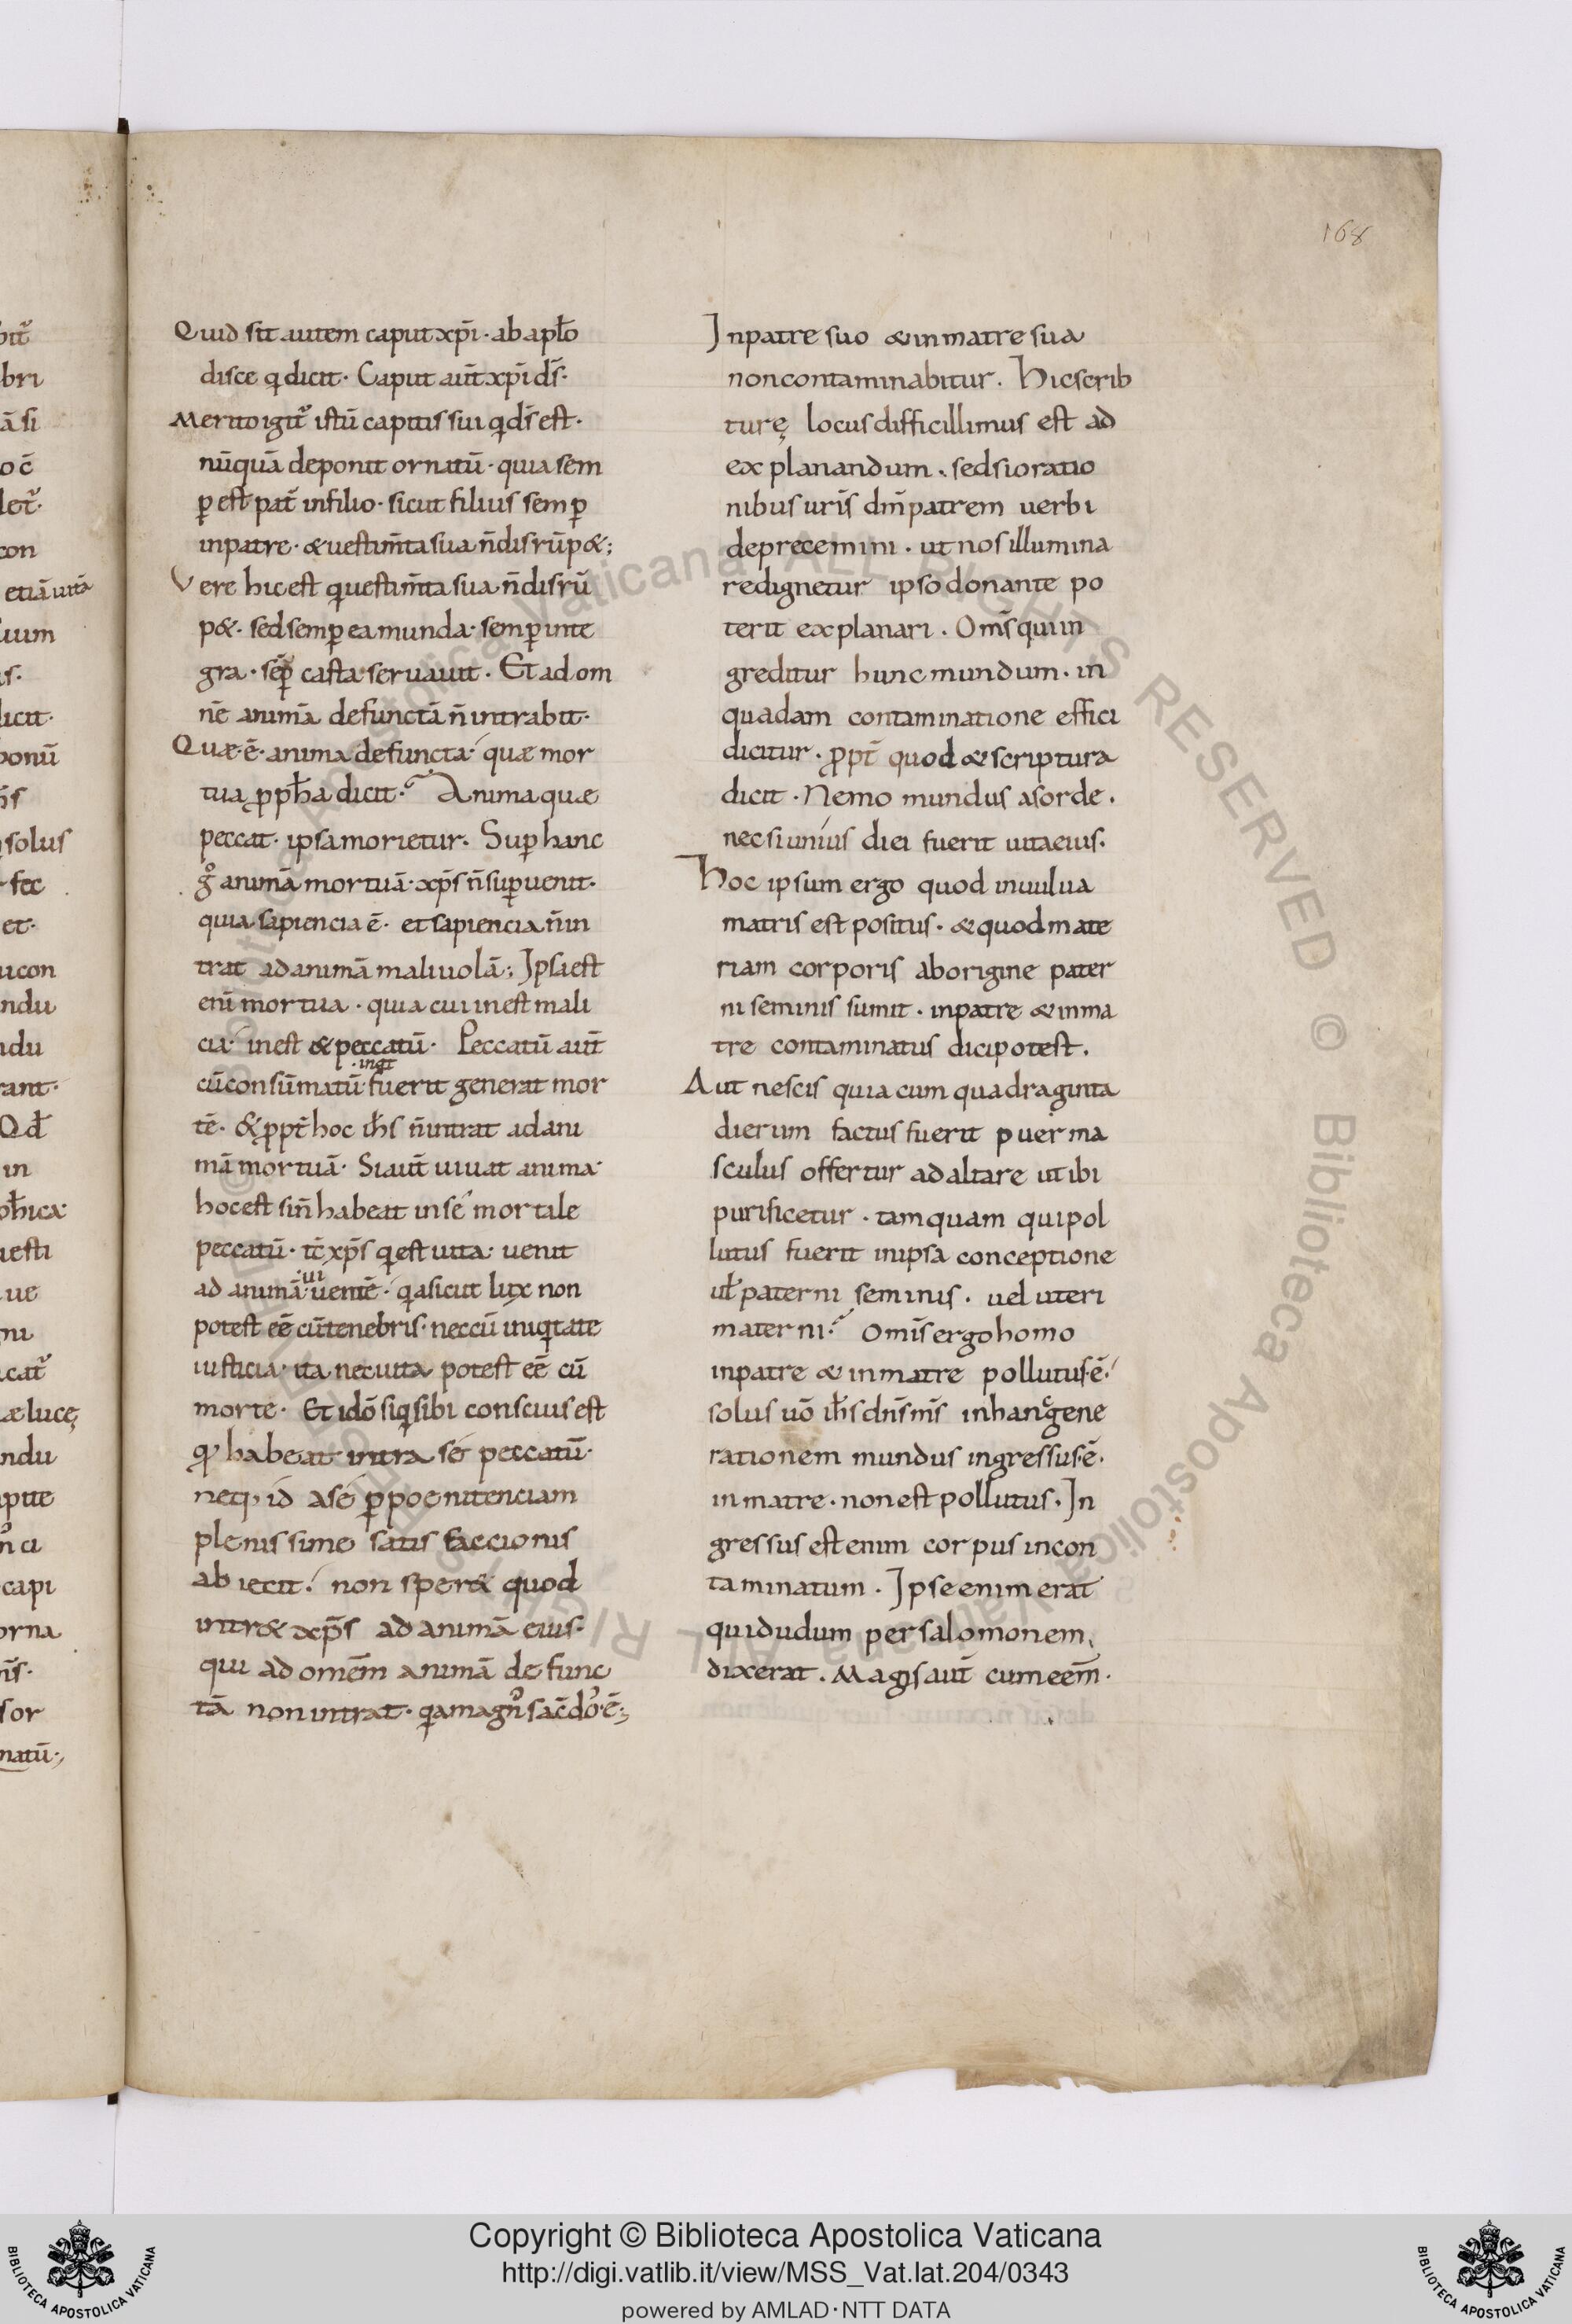 168
Quid sit autem caput xp̄i · ab apło
disce q dicit · Caput aut̄ xp̄i ds̄ ·
Merito igit᷒ istū capitis sui q ds̄ est ·
nūquā deponit ornatū · quia sem
ꝑ est pat̄ in filio · sicut filius semꝑ
in patre · & uestim̄ta sua n̄ disrūp& ;
Vere hic est q uestim̄ta sua n̄ disrū
p& · sed semꝑ ea munda · semꝑ inte
gra · sēꝑ casta seruauit · Et ad om
nē animā defunctā n̄ intrabit ·
Quæ ē · anima defuncta · quæ mor
tua ꝓpħa dicit · Anima quæ
peccat · ipsa morietur · Suꝑ hanc
g̊ animā mortuā · xp̄s n̄ suꝑuenit ·
quia sapiencia ē · et sapiencia n̄ in
trat ad animā maliuolā ; Ipsa est
eni mortua · quia cui inest mali
cia · inest & peccatū · Peccatū aut̄
· ingt
cū consūmatū fuerit generat mor
tē · & ꝓpt̄ hoc ih̄s n̄ intrat ad ani
mā mortuā · Si aut̄ uiuat anima ·
hoc est si n̄ habeat in se mortale
peccatū · tc̄ xp̄s q est uita · uenit
· ui
ad animā uentē · qa sicut lux non
potest eē cū tenebris · nec cū iniqtate
iusticia · ita nec uita potest eē cū
morte · Et idō siq sibi conscius est
qđ habeat intra se peccatū ·
neq; id a se ꝑ poenitenciam
plenissime satisfaccionis
abiecit · non sper& quod
intr& xp̄s ad animā eius ·
qui ad omēm animā defunc
tā non intrat · qa magn᷒ sac̄do᷒ ē ;
Inpatre suo & in matre sua
non contaminabitur . Hic scrib
turę locus difficillimus est ad
explanandum . sed si oratio
nibus uris̄ dm̄ patrem uerbi
deprecemini . ut nos illumina
re dignetur ipso donante po
terit explanari . Om̄s qui in
greditur hunc mundum . in
quadam contaminatione effici
dicitur . ꝓpt̄ quod & scriptura
dicit . Nemo mundus a sorde .
nec si unius diei fuerit uita eius .
Hoc ipsum ergo quod in uulua
matris est positus . & quod mate
riam corporis ab origine pater
ni seminis sumit . in patre & in ma
tre contaminatus dici potest .
Aut nescis quia cum quadraginta
dierum factus fuerit puer ma
sculus offertur ad altare ut ibi
purificetur . tamquam qui pol
lutus fuerit in ipsa conceptione
uł paterni seminis . uel uteri
materni . Omīs ergo homo
in patre & in matre pollutus ē .
solus uō ih̄s dn̄s m̄s in hanc gene
rationem mundus ingressus ē .
in matre . non est pollutus . In
gressus est enim corpus incon
taminatum . Ipse enim erat
qui dudum per salomonem
dixerat . Magis aut̄ cum eēm .
Copyright © Biblioteca Apostolica Vaticana
http://digi.vatlib.it/view/MSS_Vat.lat.204/0343
powered by AMLAD·NTT DATA